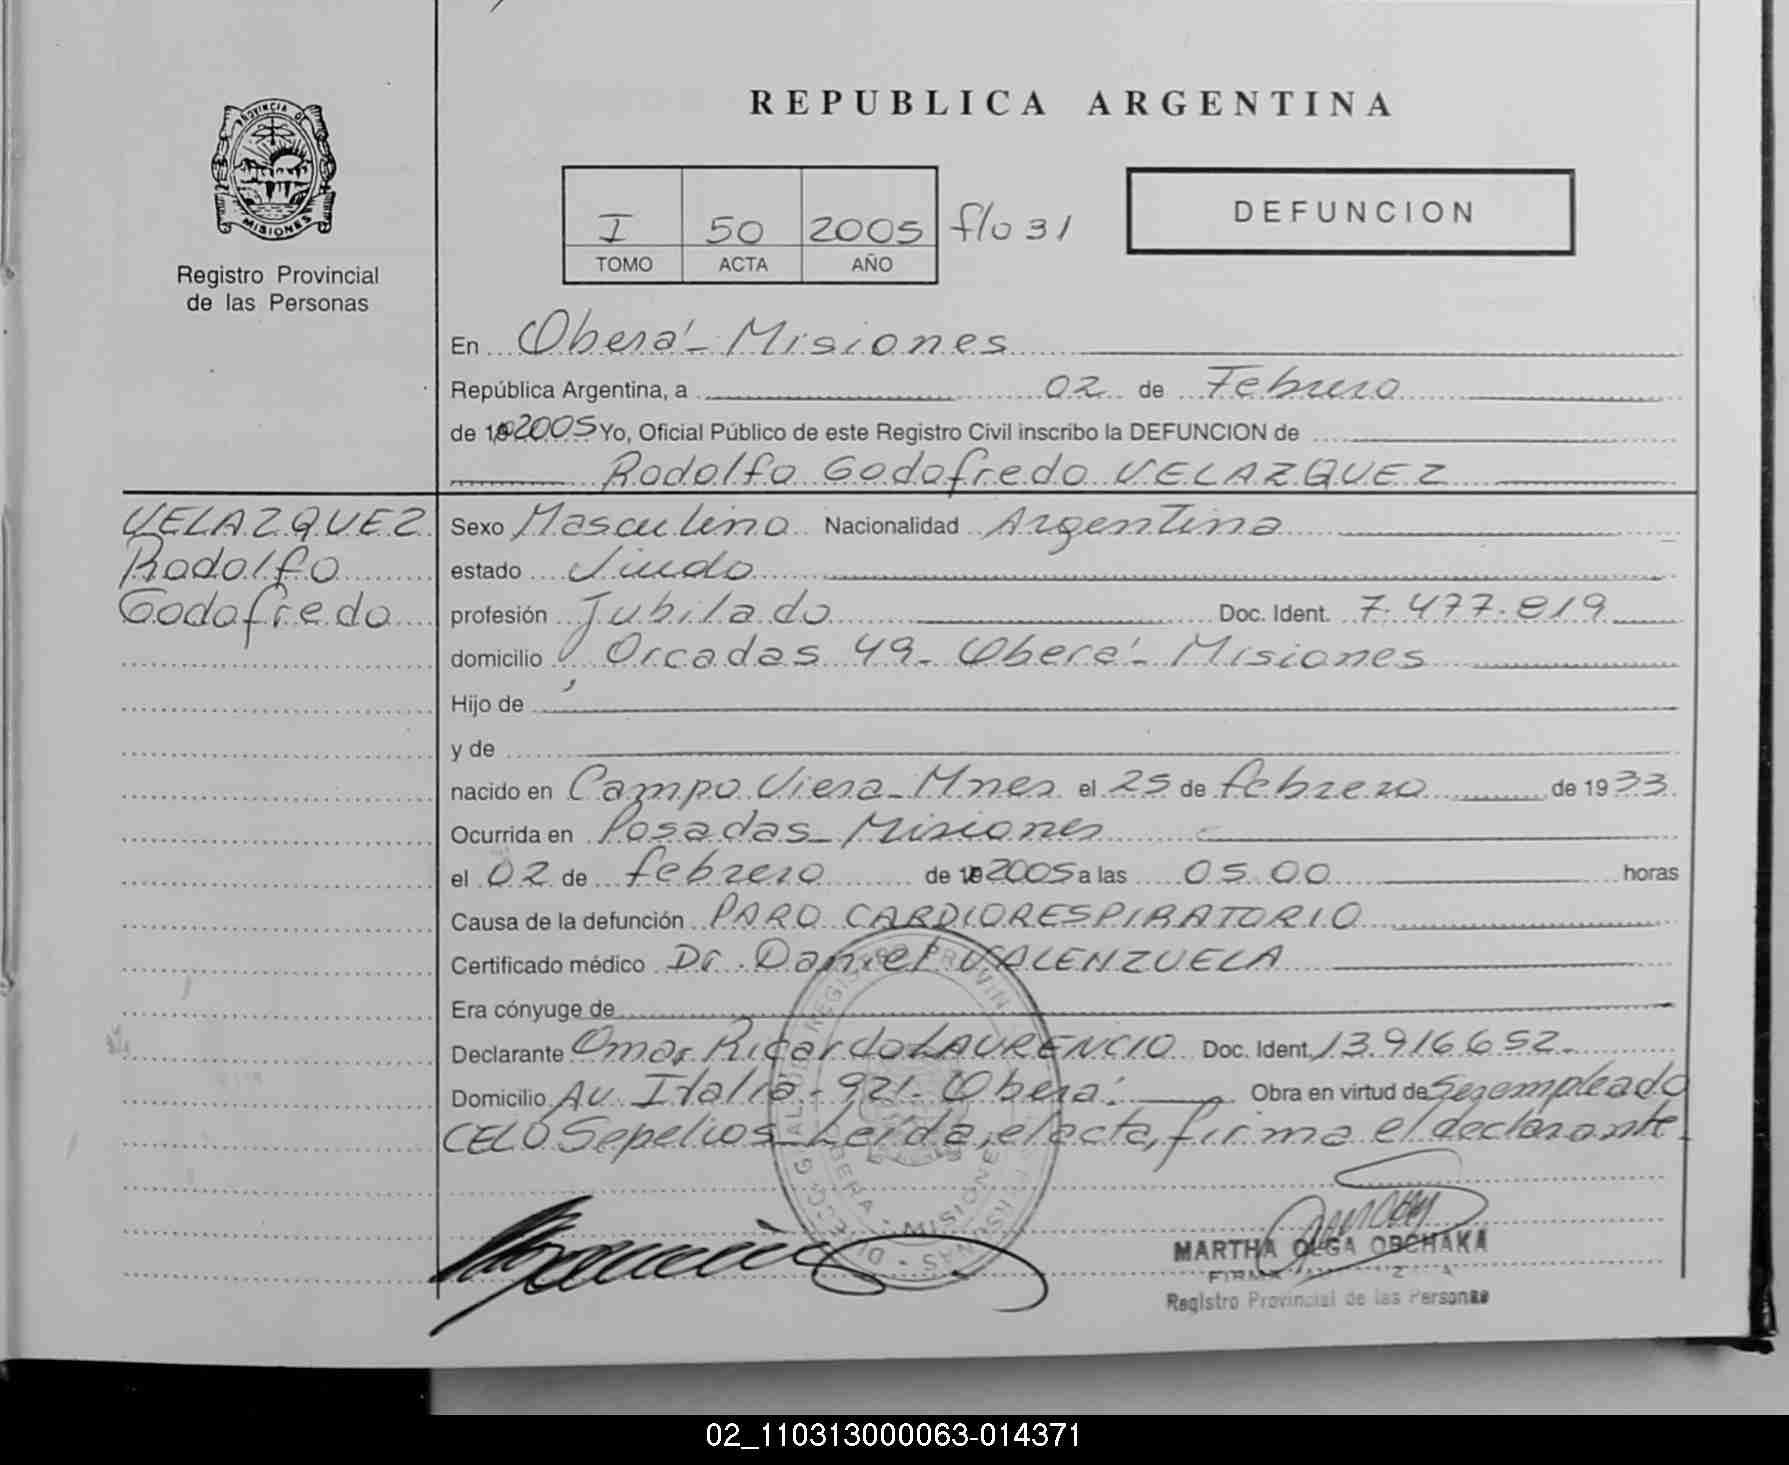 REPUBLICA ARGENTINA
PROVINCIA DE
MISIONES
Registro Provincial
de las Personas
I 50 2005 f/o 31
TOMO ACTA AÑO
DEFUNCION
En Oberá - Misiones
República Argentina, a 02 de Febrero
de 19 2005 Yo, Oficial Público de este Registro Civil inscribo la DEFUNCION de
Rodolfo Godofredo VELAZQUEZ
VELAZQUEZ
Rodolfo
Godofredo
Sexo Masculino Nacionalidad Argentina
estado Viudo
profesión Jubilado Doc. Ident. 7.477.819
domicilio Orcadas 49 - Oberá - Misiones
Hijo de
y de
nacido en Campo Viera - Mnes el 25 de febrero de 1933
Ocurrida en Posadas - Misiones
el 02 de febrero de 19 2005 a las 05.00 horas
Causa de la defunción PARO CARDIORESPIRATORIO
Certificado médico Dr. Daniel VALENZUELA
Era cónyuge de
Declarante Omar Ricardo LAURENCIO Doc. Ident. 13.916.652.
Domicilio Av. Italia - 921 - Oberá. Obra en virtud de Ser empleado
CELO Sepelios - Leída, el acta, firma el declarante.
MARTHA OLGA OBCHAKA
Registro Provincial de las Personas
02_110313000063-014371